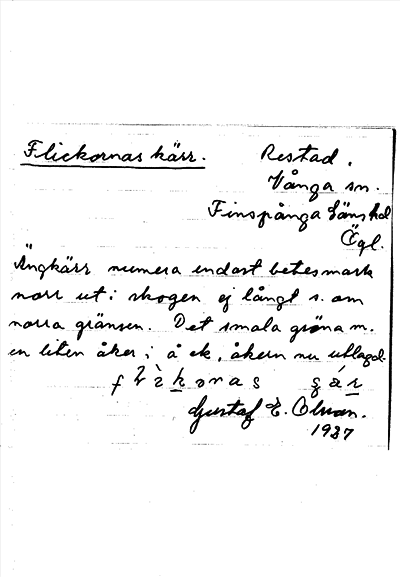 Flickornas kärr. Restad.
Vånga sn.
Finspånga läns hd
Ögl.
Ängkärr numera endast betesmark
norr ut i skogen ej långt s. om
norra gränsen. Det smala gröna m.
en liten åker i å ek, åkern nu utlagd.
Gustaf E. Olson.
1937